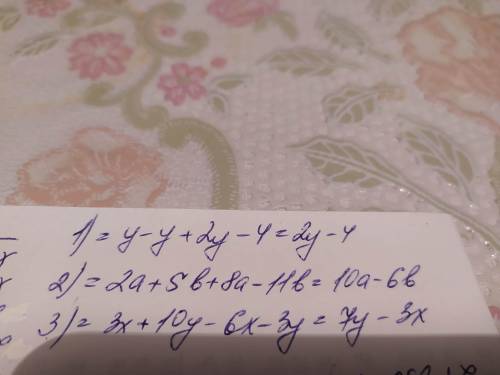 1) = y - y + 2y - 4 = 2y - 4
2) = 2a + 5b + 8a - 11b = 10a - 6b
3) = 3x + 10y - 6x - 3y = 7y - 3x